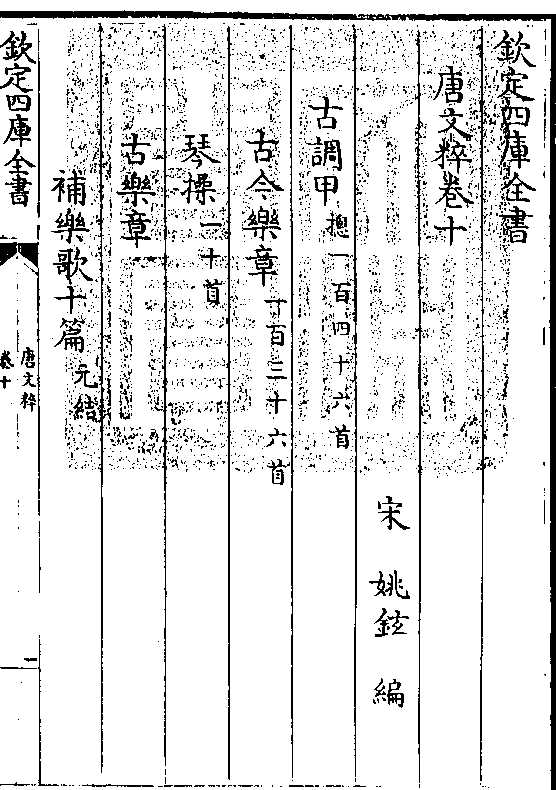 欽定四庫全書
唐文粹卷十
宋 姚鉉 編
古調甲 摠一百四十六首
古今樂章 一百三十六首
琴操 一十首
古樂章
補樂歌十篇 元結
欽定四庫全書
唐文粹
卷十
一